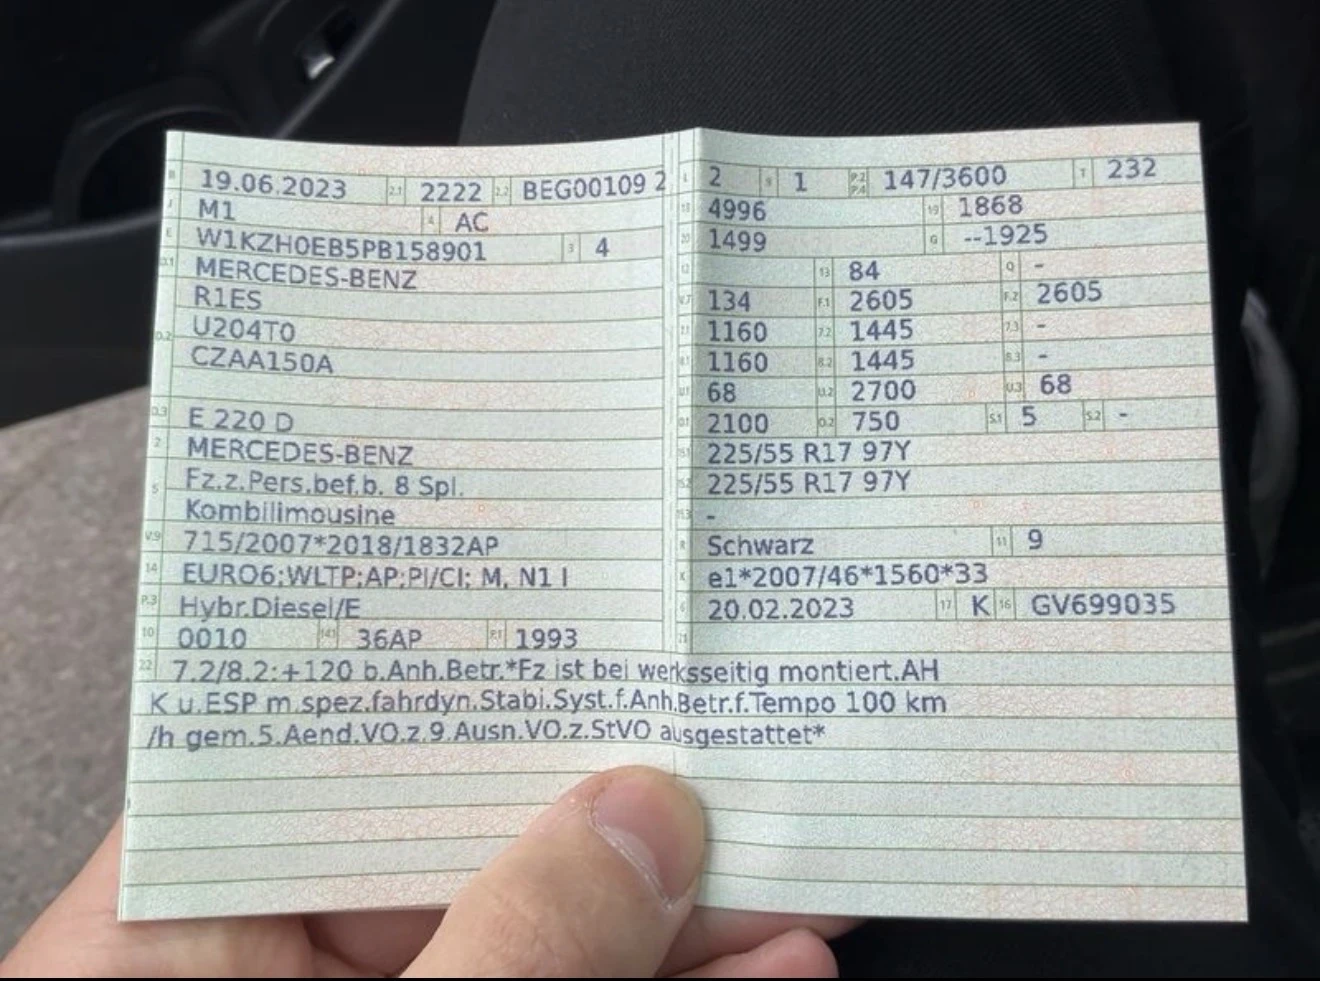 B 19.06.2023 2.1 2222 2.2 BEG00109 2
J M1 4 AC
E W1KZH0EB5PB158901 3 4
D.1 MERCEDES-BENZ
R1ES
D.2 U204T0
CZAA150A
D.3 E 220 D
2 MERCEDES-BENZ
5 Fz.z.Pers.bef.b. 8 Spl.
Kombilimousine
V.9 715/2007*2018/1832AP
14 EURO6;WLTP;AP;PI/CI; M, N1 I
P.3 Hybr.Diesel/E
10 0010 14.1 36AP P.1 1993
L 2 9 1 P.2 P.4 147/3600 T 232
18 4996 19 1868
20 1499 G --1925
12 13 84 Q -
V.7 134 F.1 2605 F.2 2605
7.1 1160 7.2 1445 7.3 -
8.1 1160 8.2 1445 8.3 -
U.1 68 U.2 2700 U.3 68
O.1 2100 O.2 750 S.1 5 S.2 -
15.1 225/55 R17 97Y
15.2 225/55 R17 97Y
15.3 -
R Schwarz 11 9
K e1*2007/46*1560*33
6 20.02.2023 17 K 16 GV699035
21
22 7.2/8.2:+120 b.Anh.Betr.*Fz ist bei werksseitig montiert.AH
K u.ESP m.spez.fahrdyn.Stabi.Syst.f.Anh.Betr.f.Tempo 100 km
/h gem.5.Aend.VO.z.9.Ausn.VO.z.StVO ausgestattet*